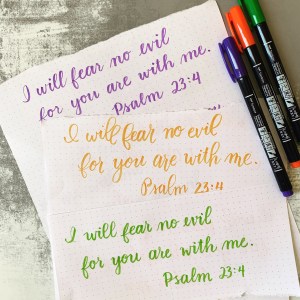 I will fear no evil
for you are with me.
Psalm 23:4
I will fear no evil
for you are with me.
Psalm 23:4
I will fear no evil
for you are with me.
Psalm 23:4